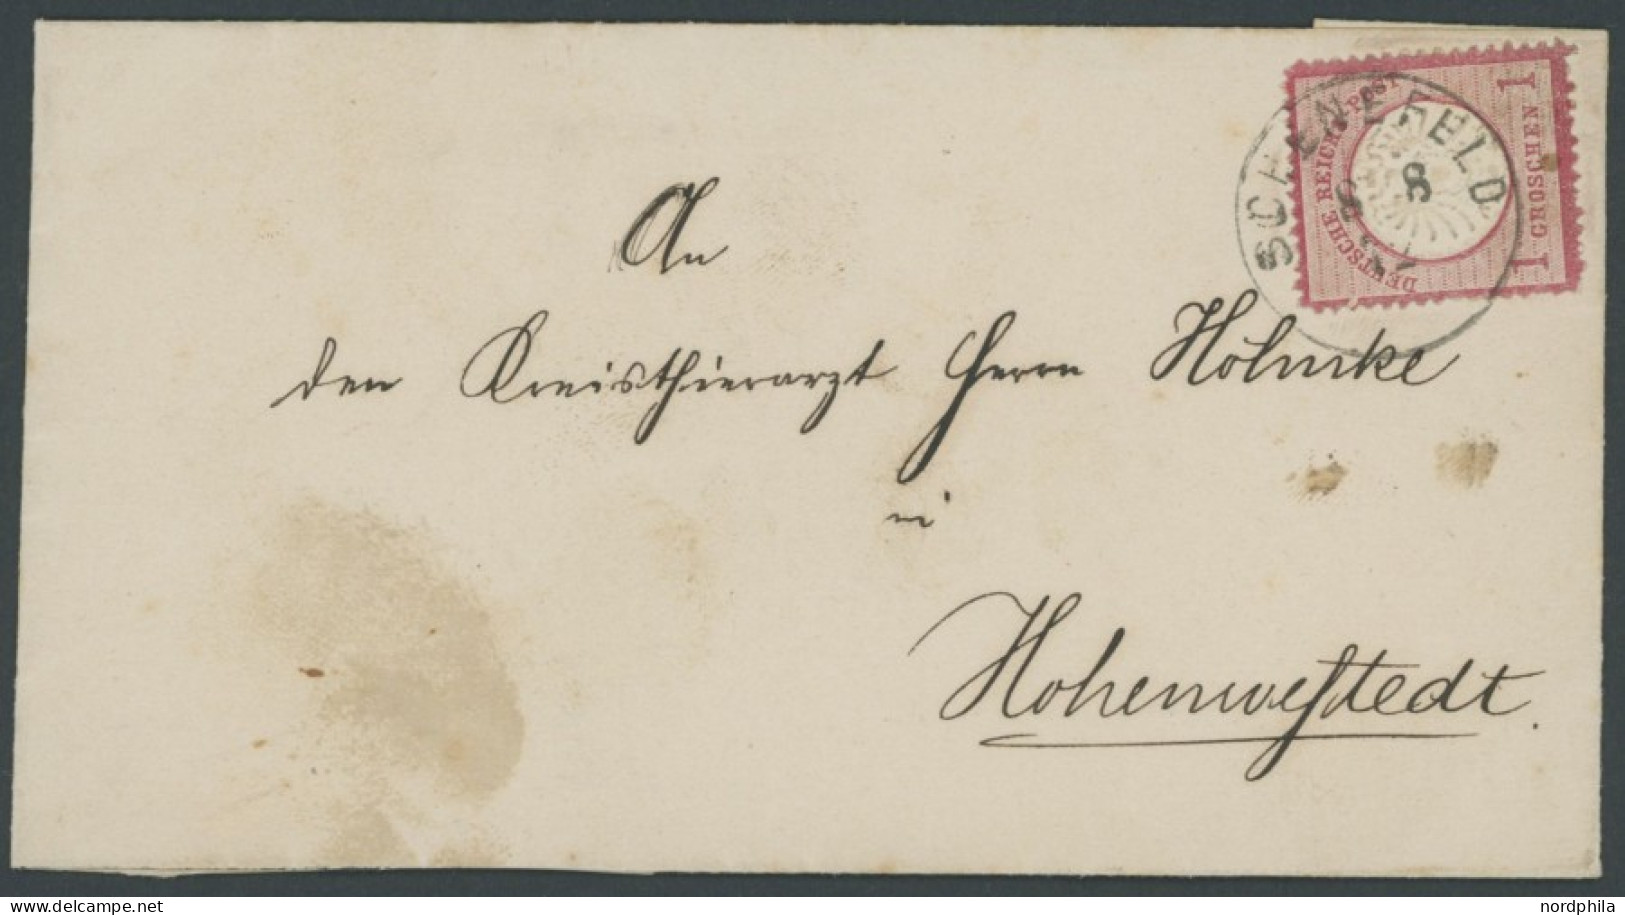 DEUTSCHE REICHS-POST
1 GROSCHEN 1
SCHENEFELD
8
An
den Kreisthierarzt Herrn
in
Hohenwestedt.
www.delcampe.net
nordphila